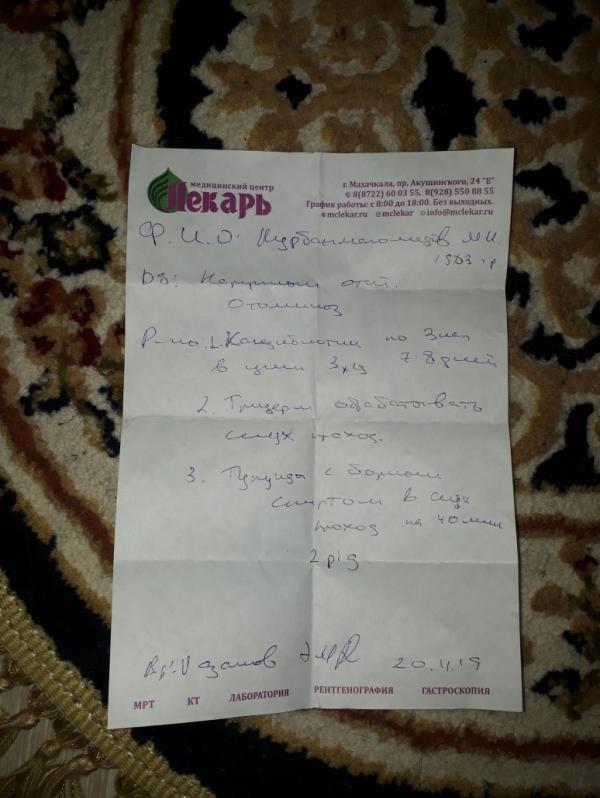 медицинский центр
Лекарь
г. Махачкала, пр. Акушинского, 24 "Е"
8(8722) 60 03 55, 8(928) 550 88 55
График работы: с 8:00 до 18:00. Без выходных.
mclekar.ru mclekar info@mclekar.ru
Ф. И. О: Курбанмагомедов М.И.
1963 гр
DS: Наружный отит.
Отомикоз
Р-но: 1. Кандибиотик по 3 кап
в уши 3 х/д 7-8 дней
2. Тридерм обрабатывать
слух проход.
3. Турунды с борным
спиртом в слух
проход на 40 мин
2 р/д
Вр:
20.11.19
МРТ КТ ЛАБОРАТОРИЯ РЕНТГЕНОГРАФИЯ ГАСТРОСКОПИЯ